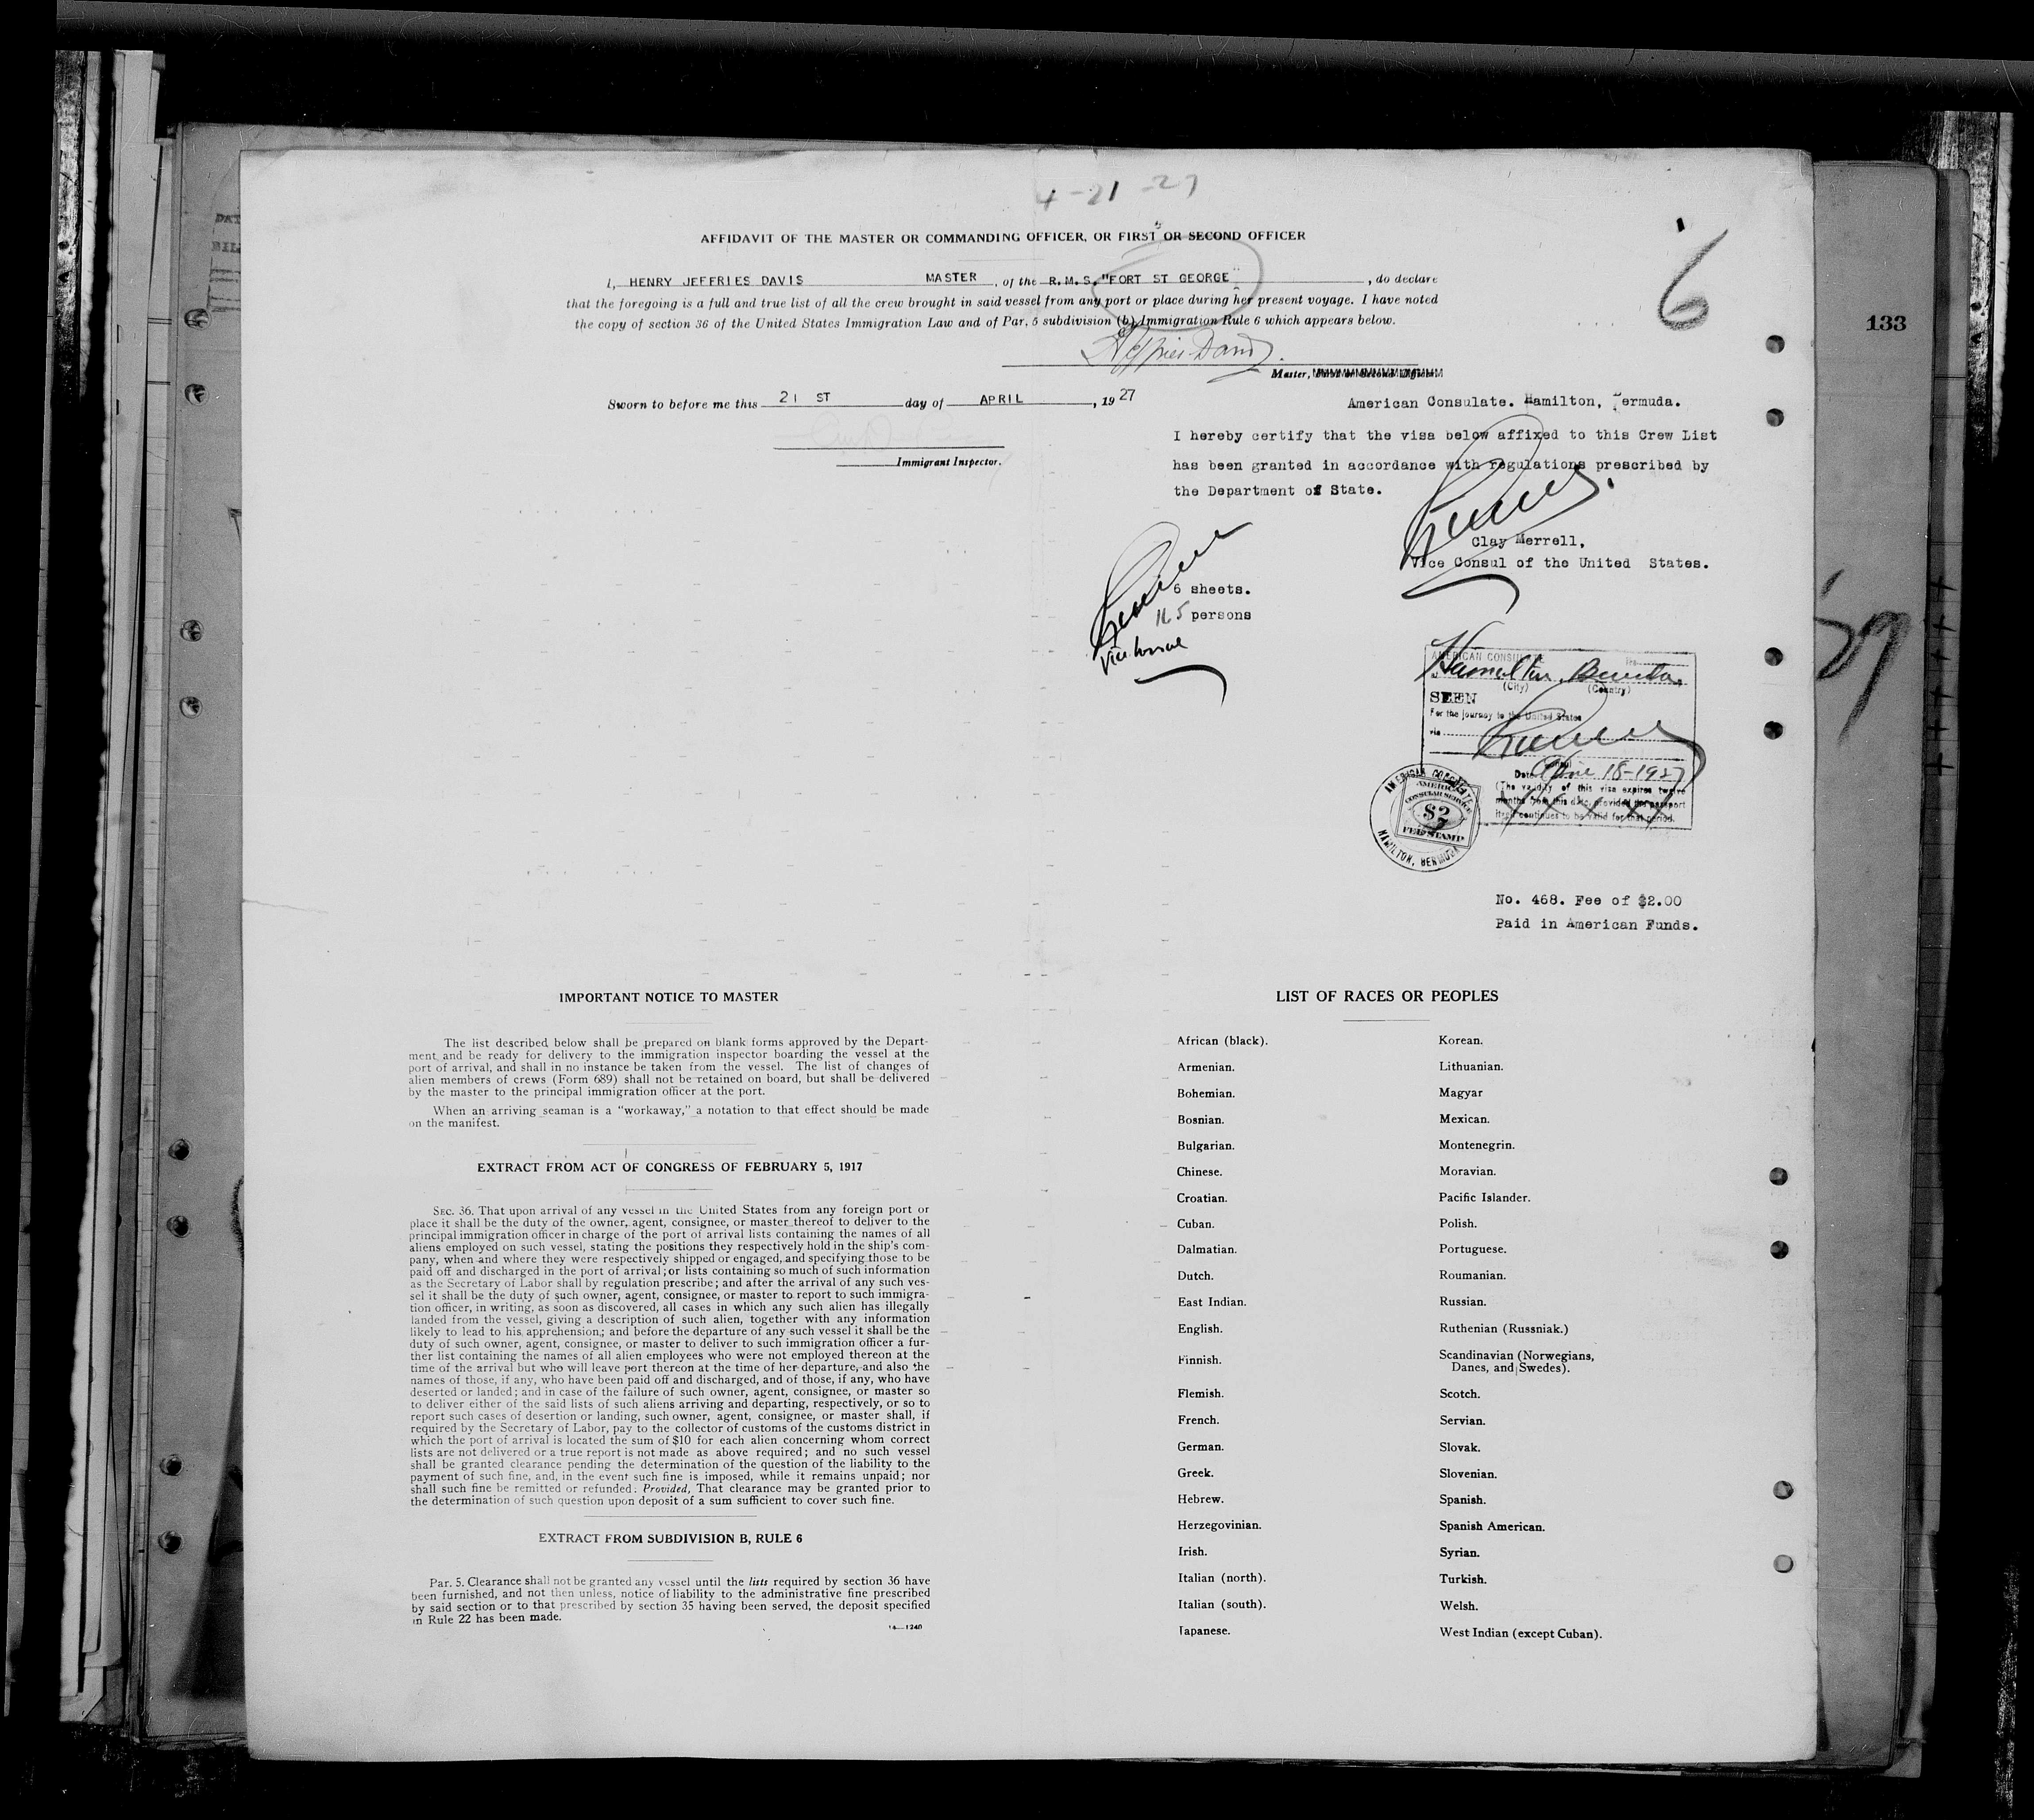 4-21-27
AFFIDAVIT OF THE MASTER OR COMMANDING OFFICER, OR FIRST OR SECOND OFFICER
6
133
I, HENRY JEFFRIES DAVIS MASTER, of the R.M.S. "FORT ST GEORGE", do declare
that the foregoing is a full and true list of all the crew brought in said vessel from any port or place during her present voyage. I have noted
the copy of section 36 of the United States Immigration Law and of Par. 5 subdivision (b) Immigration Rule 6 which appears below.
H Jeffries Davis.
Master, First or Second Officer.
Sworn to before me this 21 ST day of APRIL, 1927
Immigrant Inspector.
American Consulate. Hamilton, Bermuda.
I hereby certify that the visa below affixed to this Crew List
has been granted in accordance with regulations prescribed by
the Department of State.
Clay Merrell,
Vice Consul of the United States.
6 sheets.
165 persons
Vice Consul
AMERICAN CONSULATE
Hamilton, Bermuda
(City) (Country)
SEEN
For the journey to the United States
via
Consul
Date 18-1927
(The validity of this visa expires twelve
months from this date, provided the passport
itself continues to be valid for that period.
AMERICAN CONSULATE
HAMILTON, BERMUDA
AMERICAN
CONSULAR SERVICE
$2
FEE STAMP
No. 468. Fee of $2.00
Paid in American Funds.
IMPORTANT NOTICE TO MASTER
The list described below shall be prepared on blank forms approved by the Depart-
ment and be ready for delivery to the immigration inspector boarding the vessel at the
port of arrival, and shall in no instance be taken from the vessel. The list of changes of
alien members of crews (Form 689) shall not be retained on board, but shall be delivered
by the master to the principal immigration officer at the port.
When an arriving seaman is a "workaway," a notation to that effect should be made
on the manifest.
EXTRACT FROM ACT OF CONGRESS OF FEBRUARY 5, 1917
SEC. 36. That upon arrival of any vessel in the United States from any foreign port or
place it shall be the duty of the owner, agent, consignee, or master thereof to deliver to the
principal immigration officer in charge of the port of arrival lists containing the names of all
aliens employed on such vessel, stating the positions they respectively hold in the ship's com-
pany, when and where they were respectively shipped or engaged, and specifying those to be
paid off and discharged in the port of arrival; or lists containing so much of such information
as the Secretary of Labor shall by regulation prescribe; and after the arrival of any such ves-
sel it shall be the duty of such owner, agent, consignee, or master to report to such immigra-
tion officer, in writing, as soon as discovered, all cases in which any such alien has illegally
landed from the vessel, giving a description of such alien, together with any information
likely to lead to his apprehension; and before the departure of any such vessel it shall be the
duty of such owner, agent, consignee, or master to deliver to such immigration officer a fur-
ther list containing the names of all alien employees who were not employed thereon at the
time of the arrival but who will leave port thereon at the time of her departure, and also the
names of those, if any, who have been paid off and discharged, and of those, if any, who have
deserted or landed; and in case of the failure of such owner, agent, consignee, or master so
to deliver either of the said lists of such aliens arriving and departing, respectively, or so to
report such cases of desertion or landing, such owner, agent, consignee, or master shall, if
required by the Secretary of Labor, pay to the collector of customs of the customs district in
which the port of arrival is located the sum of $10 for each alien concerning whom correct
lists are not delivered or a true report is not made as above required; and no such vessel
shall be granted clearance pending the determination of the question of the liability to the
payment of such fine, and, in the event such fine is imposed, while it remains unpaid; nor
shall such fine be remitted or refunded: Provided, That clearance may be granted prior to
the determination of such question upon deposit of a sum sufficient to cover such fine.
EXTRACT FROM SUBDIVISION B, RULE 6
Par. 5. Clearance shall not be granted any vessel until the lists required by section 36 have
been furnished, and not then unless, notice of liability to the administrative fine prescribed
by said section or to that prescribed by section 35 having been served, the deposit specified
in Rule 22 has been made.
14—1240
LIST OF RACES OR PEOPLES
African (black).
Armenian.
Bohemian.
Bosnian.
Bulgarian.
Chinese.
Croatian.
Cuban.
Dalmatian.
Dutch.
East Indian.
English.
Finnish.
Flemish.
French.
German.
Greek.
Hebrew.
Herzegovinian.
Irish.
Italian (north).
Italian (south).
Japanese.
Korean.
Lithuanian.
Magyar
Mexican.
Montenegrin.
Moravian.
Pacific Islander.
Polish.
Portuguese.
Roumanian.
Russian.
Ruthenian (Russniak.)
Scandinavian (Norwegians,
Danes, and Swedes).
Scotch.
Servian.
Slovak.
Slovenian.
Spanish.
Spanish American.
Syrian.
Turkish.
Welsh.
West Indian (except Cuban).